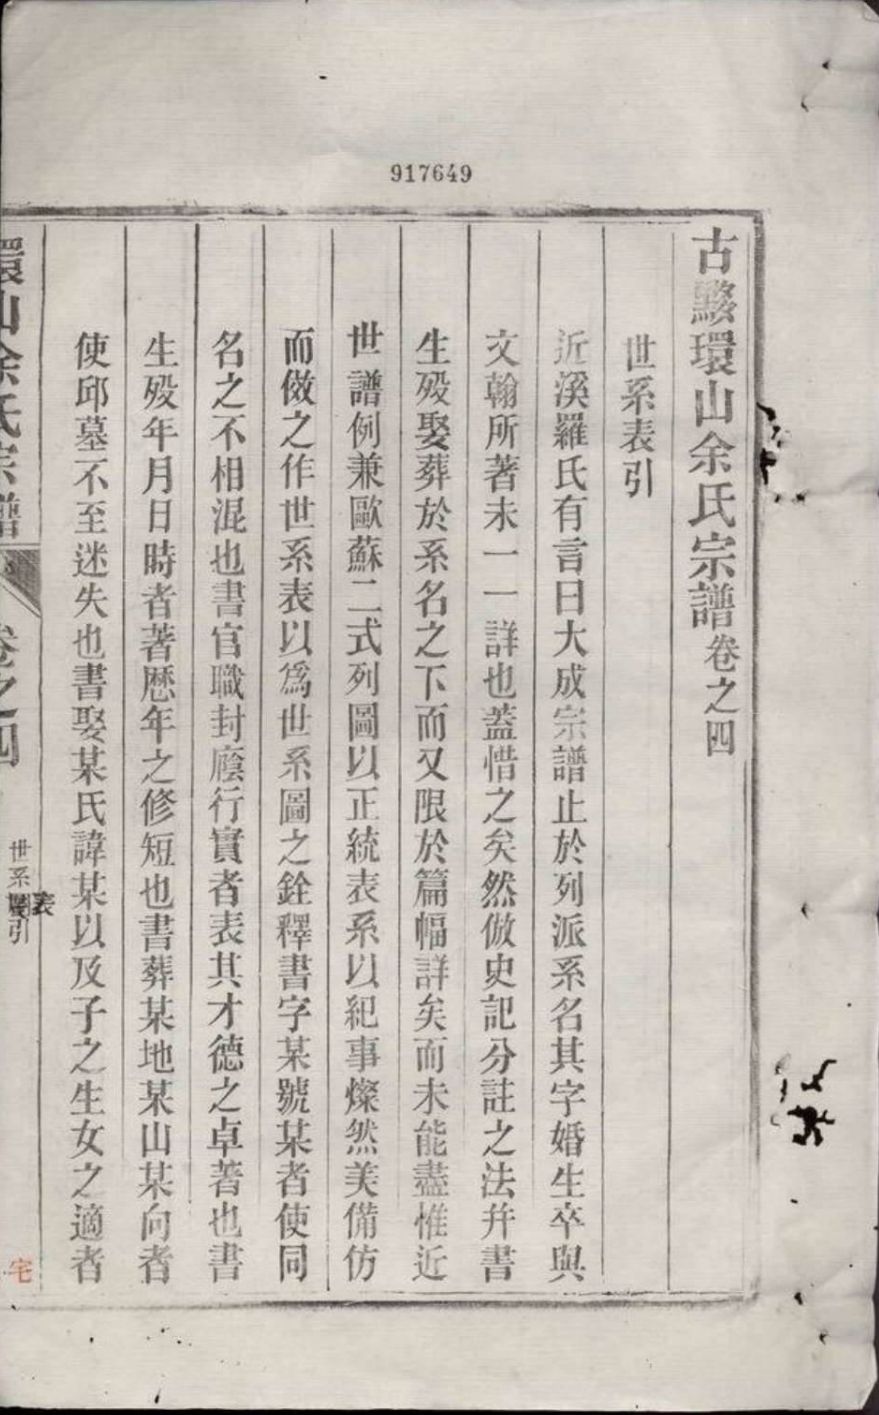 917649
古黟環山余氏宗譜卷之四
世系表引
近溪羅氏有言曰大成宗譜止於列派系名其字婚生卒與
文翰所著未一一詳也蓋惜之矣然倣史記分註之法幷書
生殁娶葬於系名之下而又限於篇幅詳矣而未能盡惟近
世譜例兼歐蘇二式列圖以正統表系以紀事燦然美備仿
而倣之作世系表以爲世系圖之銓釋書字某號某者使同
名之不相混也書官職封廕行實者表其才德之卓著也書
生殁年月日時者著歷年之修短也書葬某地某山某向者
使邱墓不至迷失也書娶某氏諱某以及子之生女之適者
環山余氏宗譜
卷之四
世系表引
宅